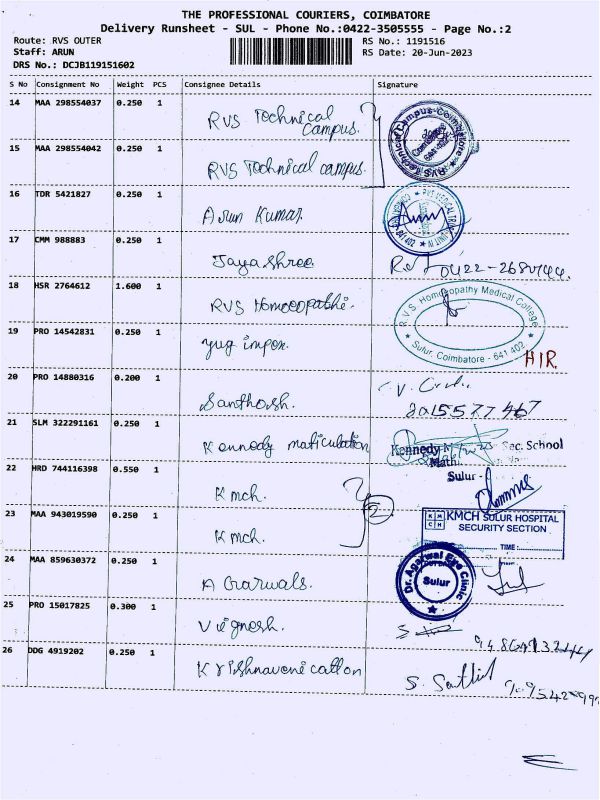 THE PROFESSIONAL COURIERS, COIMBATORE
Delivery Runsheet - SUL - Phone No.:0422-3505555 - Page No.:2
Route: RVS OUTER
RS No.: 1191516
Staff: ARUN
RS Date: 20-Jun-2023
DRS No.: DCJB119151602
S No Consignment No Weight PCS Consignee Details Signature
14 MAA 298554037 0.250 1 RVS Technical Campus.
15 MAA 298554042 0.250 1 RVS Technical campus.
R.V.S Technical Campus-Coimbatore
16 TDR 5421827 0.250 1 Arun Kumar
641 402
17 CMM 988883 0.250 1 Jayashree
18 HSR 2764612 1.600 1 RVS Homoeopathi.
R.V.S. Homeopathy Medical College
Sulur, Coimbatore - 641 402
19 PRO 14542831 0.250 1 yug impex.
HIR.
20 PRO 14880316 0.200 1 Santhosh.
21 SLM 322291161 0.250 1 Kennedy maticulation
Kennedy Sec. School
Sulur -
22 HRD 744116398 0.550 1 Kmch.
2
23 MAA 943019590 0.250 1 Kmch.
KMCH SULUR HOSPITAL
SECURITY SECTION
TIME:
24 MAA 859630372 0.250 1 A Garwals.
Dr. Agarwal Eye Clinic
Sulur
25 PRO 15017825 0.300 1 Vignesh.
26 DDG 4919202 0.250 1 Krishnaveni cotton